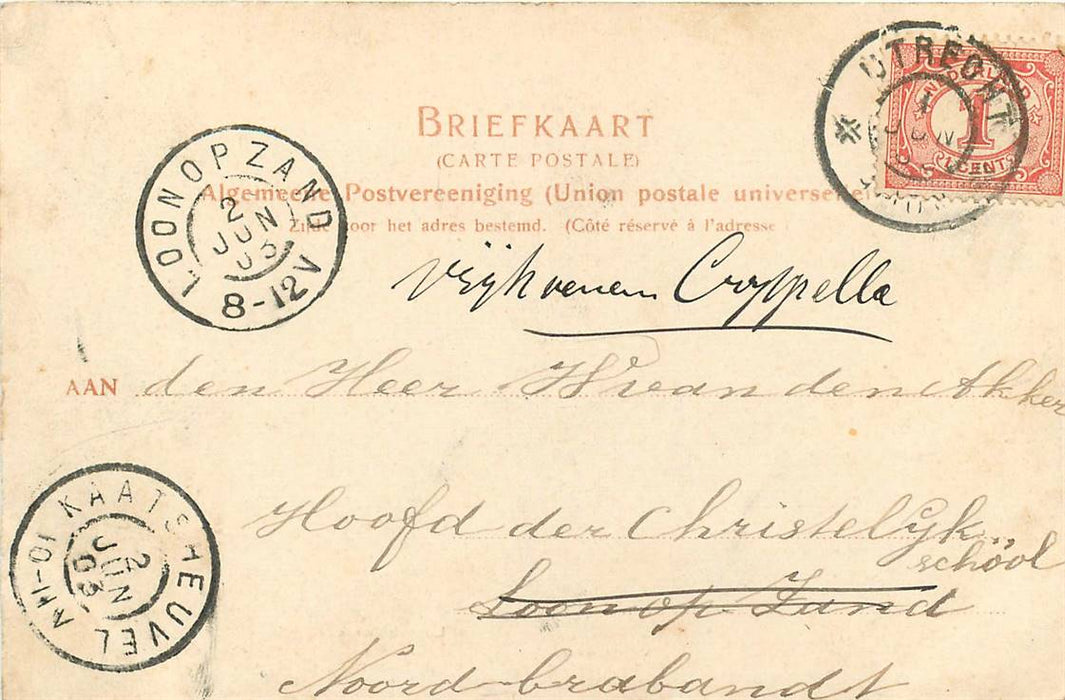 BRIEFKAART
(CARTE POSTALE)
Algemeene Postvereeniging (Union postale universelle)
Zijde voor het adres bestemd. (Côté réservé à l'adresse
UTRECHT
1
JUN
1
CENT
LOONOPZAND
2
JUN
03
8-12V
Cappella
AAN den Heer W van den Akker
Hoofd der Christelijk
school
Loon op Zand
Noord-brabandt
KAATSHEUVEL
2
JUN
03